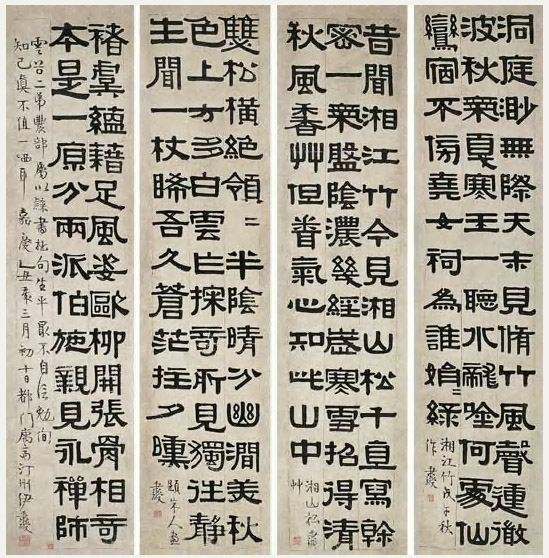 洞庭渺無際天末見脩竹風聲連微
波秋氣戛寒玉一聽水龍唫何處仙
鸞宿不傍堯女祠為誰娟〻綠
湘江竹戊午秋
作
昔聞湘江竹今見湘山松千直寫幹
密一氣盤陰濃幾經歲寒雪招得清
秋風香艸但眷氣心知此山中
湘山松
艸
雙松橫絕領〻半陰晴分幽澗美秋
色上方多白雲亡探奇所見獨往靜
生聞一杖晞吾久蒼茫挂夕曛
題宋人畫
褚虞蘊藉足風姿歐柳開張骨相奇
本是一原分兩派伯施親見永禪師
雲谷二弟農部屬以隸書拙句生平最不自信勉徇
知己真不值一哂耳 嘉慶乙丑歲三月初十日都門寓齋汀州伊秉綬